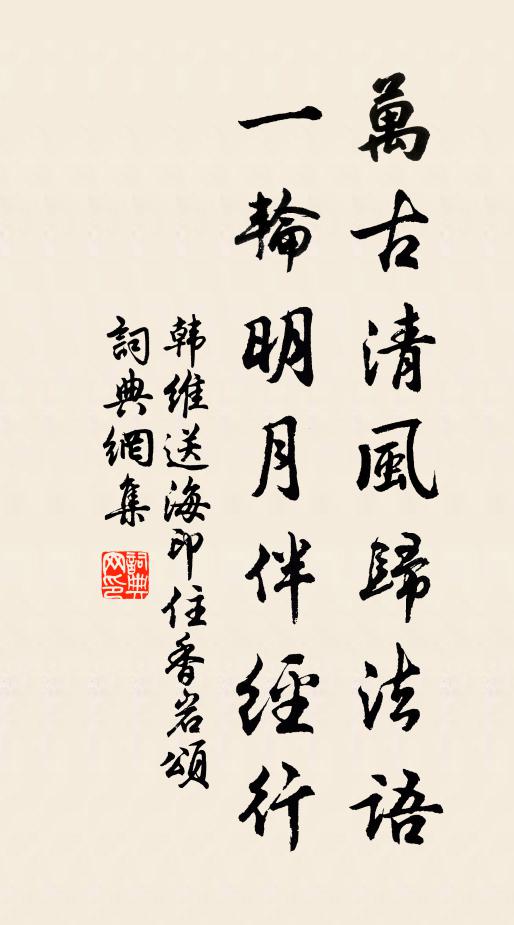 萬古清風歸法語
一輪明月伴經行
韩維送海印住香岩頌
詞典網集
詞典
网印